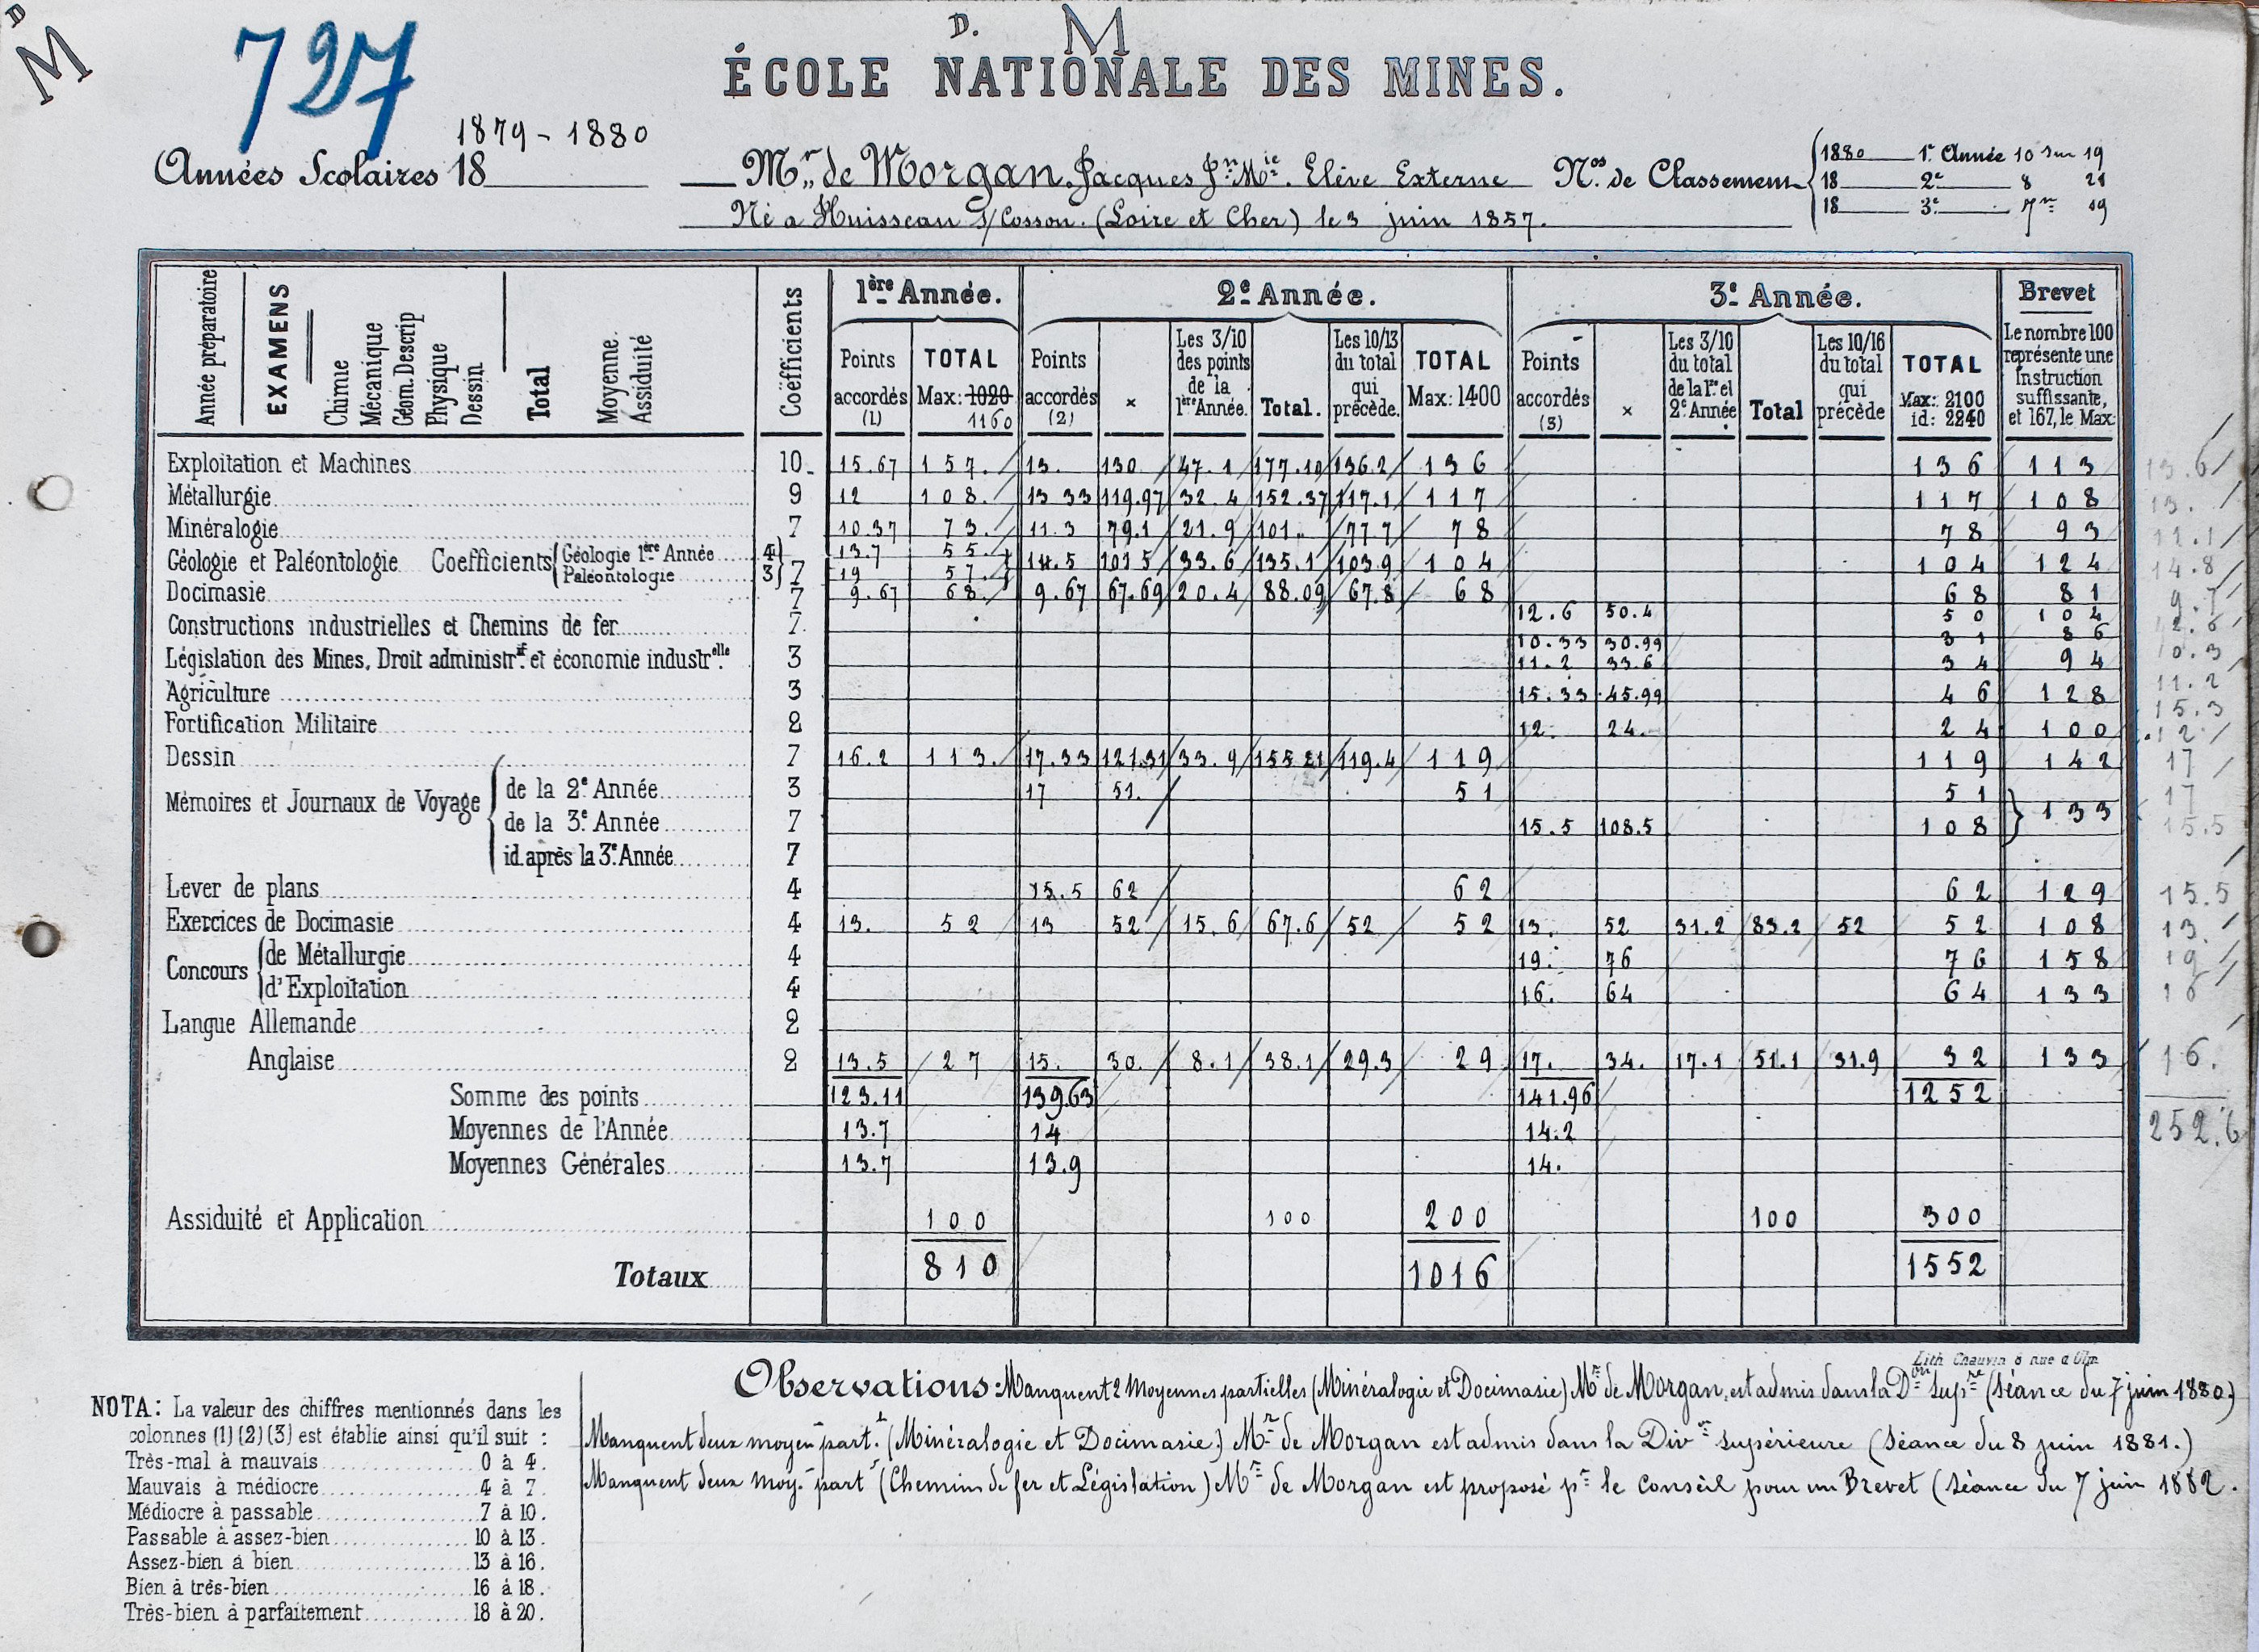 D
M
727
D. M
ÉCOLE NATIONALE DES MINES.
1879 - 1880
Années Scolaires 18
Mr. de Morgan, Jacques Jn. Mie. Elève Externe
Né à Huisseau s/ Cosson. (Loire et Cher) le 3 juin 1857.
Nos. de Classement
1880 1re Année 10 sur 19
18 2e 8 21
18 3e 7 19
Année préparatoire
EXAMENS
Chimie
Mécanique
Géom. Descrip
Physique
Dessin
Total
Moyenne.
Assiduité
Coëfficients
1ère Année.
Points accordés (1)
TOTAL Max: 1020 1160
2e Année.
Points accordés (2)
×
Les 3/10 des points de la 1ère Année.
Total.
Les 10/13 du total qui précède.
TOTAL Max: 1400
3e Année.
Points accordés (3)
×
Les 3/10 du total de la 1re et 2e Année
Total
Les 10/16 du total qui précède
TOTAL Max: 2100 id: 2240
Brevet
Le nombre 100 représente une instruction suffissante, et 167, le Max:
Exploitation et Machines 10 15.67 157. 13. 130 47.1 177.10 136.2 136 136 113 13.6
Métallurgie 9 12 108. 13 33 119.97 32.4 152.37 117.1 117 117 108 13.
Minéralogie 7 10.37 73. 11.3 79.1 21.9 101 77 7 78 78 93 11.1
Géologie et Paléontologie Coefficients Géologie 1ère Année 4 13.7 55.
Paléontologie 3 19 57.
7 14.5 101 5 33.6 135.1 103 9 104 104 124 14.8
Docimasie 7 9.67 68. 9.67 67.69 20.4 88.09 67.8 68 68 81 9.7
Constructions industrielles et Chemins de fer 7 12.6 50.4 50 104 12.6
10.33 30.99 31 86 10.3
Législation des Mines, Droit administrif. et économie industrelle. 3 11.2 33.6 34 94 11.2
Agriculture 3 15.33 45.99 46 128 15.3
Fortification Militaire 2 12. 24. 24 100 12
Dessin 7 16.2 113. 17.33 121.31 33.9 155 21 119.4 119 119 142 17
Mémoires et Journaux de Voyage
de la 2e Année 3 17 51. 51 51 17
de la 3e Année 7 15.5 108.5 108 133 15.5
id. après la 3e Année 7
Lever de plans 4 15.5 62 62 62 129 15.5
Exercices de Docimasie 4 13. 52 13 52 15.6 67.6 52 52 13. 52 31.2 83.2 52 52 108 13.
Concours
de Métallurgie 4 19. 76 76 158 19
d'Exploitation 4 16. 64 64 133 16
Langue Allemande 2
Anglaise 2 13.5 27 15. 30. 8.1 38.1 29.3 29 17. 34. 17.1 51.1 31.9 32 133 16.
Somme des points 123.11 139.63 141.96 1252
252.6
Moyennes de l'Année 13.7 14 14.2
Moyennes Générales 13.7 13.9 14.
Assiduité et Application 100 100 200 100 300
Totaux 810 1016 1552
Lith. Chauvin 8 rue d'Ulm
NOTA: La valeur des chiffres mentionnés dans les
colonnes (1) (2) (3) est établie ainsi qu'il suit :
Très-mal à mauvais 0 à 4.
Mauvais à médiocre 4 à 7.
Médiocre à passable 7 à 10.
Passable à assez-bien 10 à 13.
Assez-bien à bien 13 à 16.
Bien à très-bien 16 à 18.
Très-bien à parfaitement 18 à 20.
Observations : Manquent 2 Moyennes partielles (Minéralogie et Docimasie) Mr de Morgan, est admis dans la Don Supre (Séance du 7 juin 1880)
Manquent deux moyen part. (Minéralogie et Docimasie) Mr. de Morgan est admis dans la Divon supérieure (Séance du 8 juin 1881.)
Manquent deux moy. part (Chemin de fer et Législation) Mr de Morgan est proposé pr le Conseil pour un Brevet (Séance du 7 juin 1882.